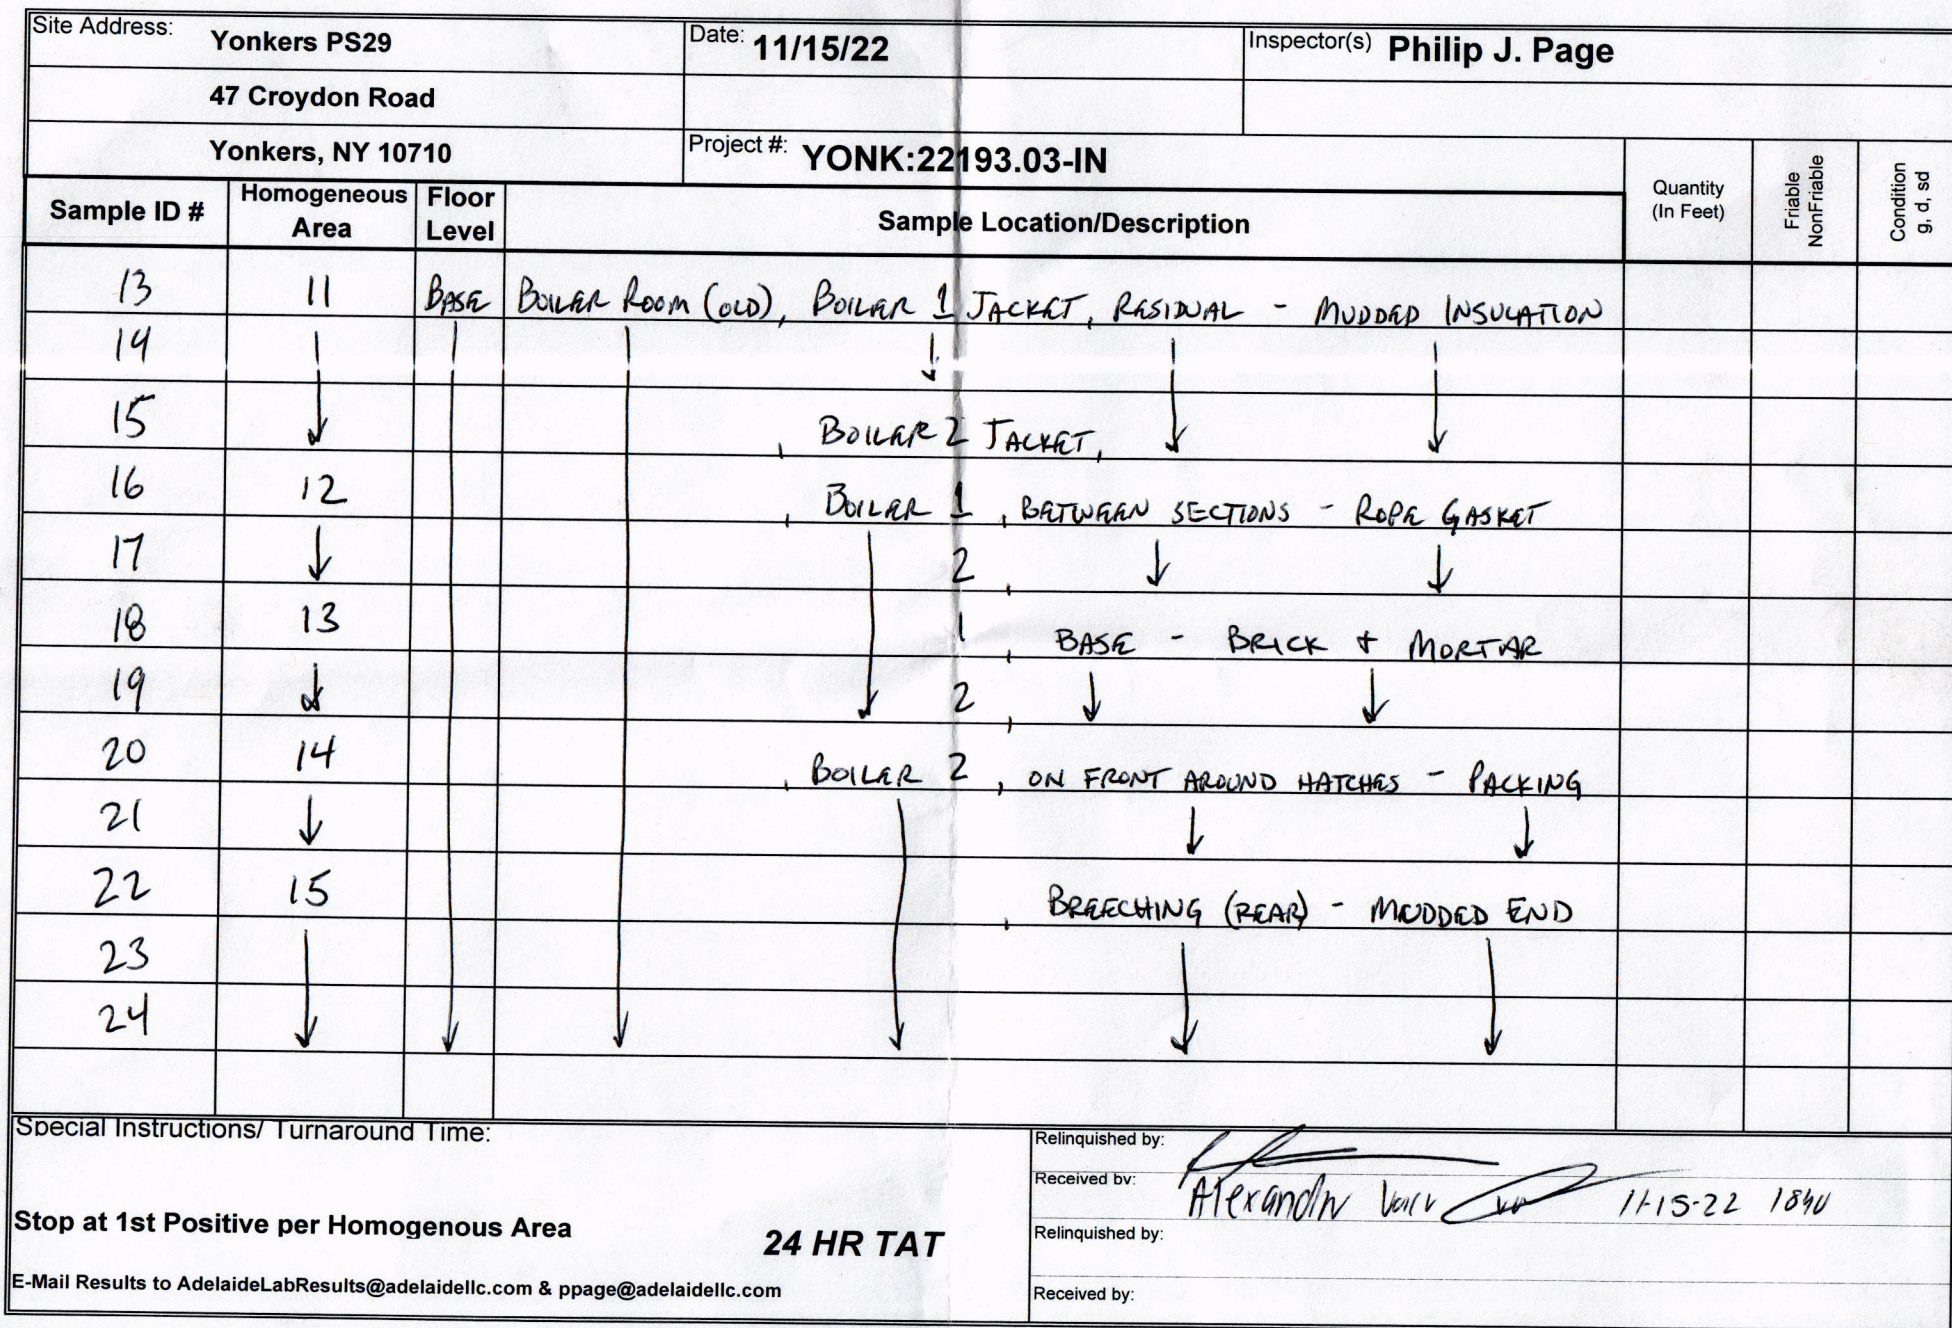 Site Address: Yonkers PS29 Date: 11/15/22 Inspector(s) Philip J. Page
47 Croydon Road
Yonkers, NY 10710 Project #: YONK:22193.03-IN
Sample ID # Homogeneous Area Floor Level Sample Location/Description Quantity (In Feet) Friable NonFriable Condition g, d, sd
13 11 BASE BOILER ROOM (OLD), BOILER 1 JACKET, RESIDUAL - MUDDED INSULATION
14 ↓
15 , BOILER 2 JACKET,
16 12 , BOILER 1 , BETWEEN SECTIONS - ROPE GASKET
17 ↓ 2 , ↓ ↓
18 13 1 , BASE - BRICK & MORTAR
19 ↓ 2 , ↓ ↓
20 14 , BOILER 2 , ON FRONT AROUND HATCHES - PACKING
21 ↓ ↓ ↓
22 15 , BREECHING (REAR) - MUDDED END
23
24
Special Instructions/ Turnaround Time:
Stop at 1st Positive per Homogenous Area 24 HR TAT
E-Mail Results to AdelaideLabResults@adelaidellc.com & ppage@adelaidellc.com
Relinquished by:
Received by: 11-15-22 1840
Relinquished by:
Received by: